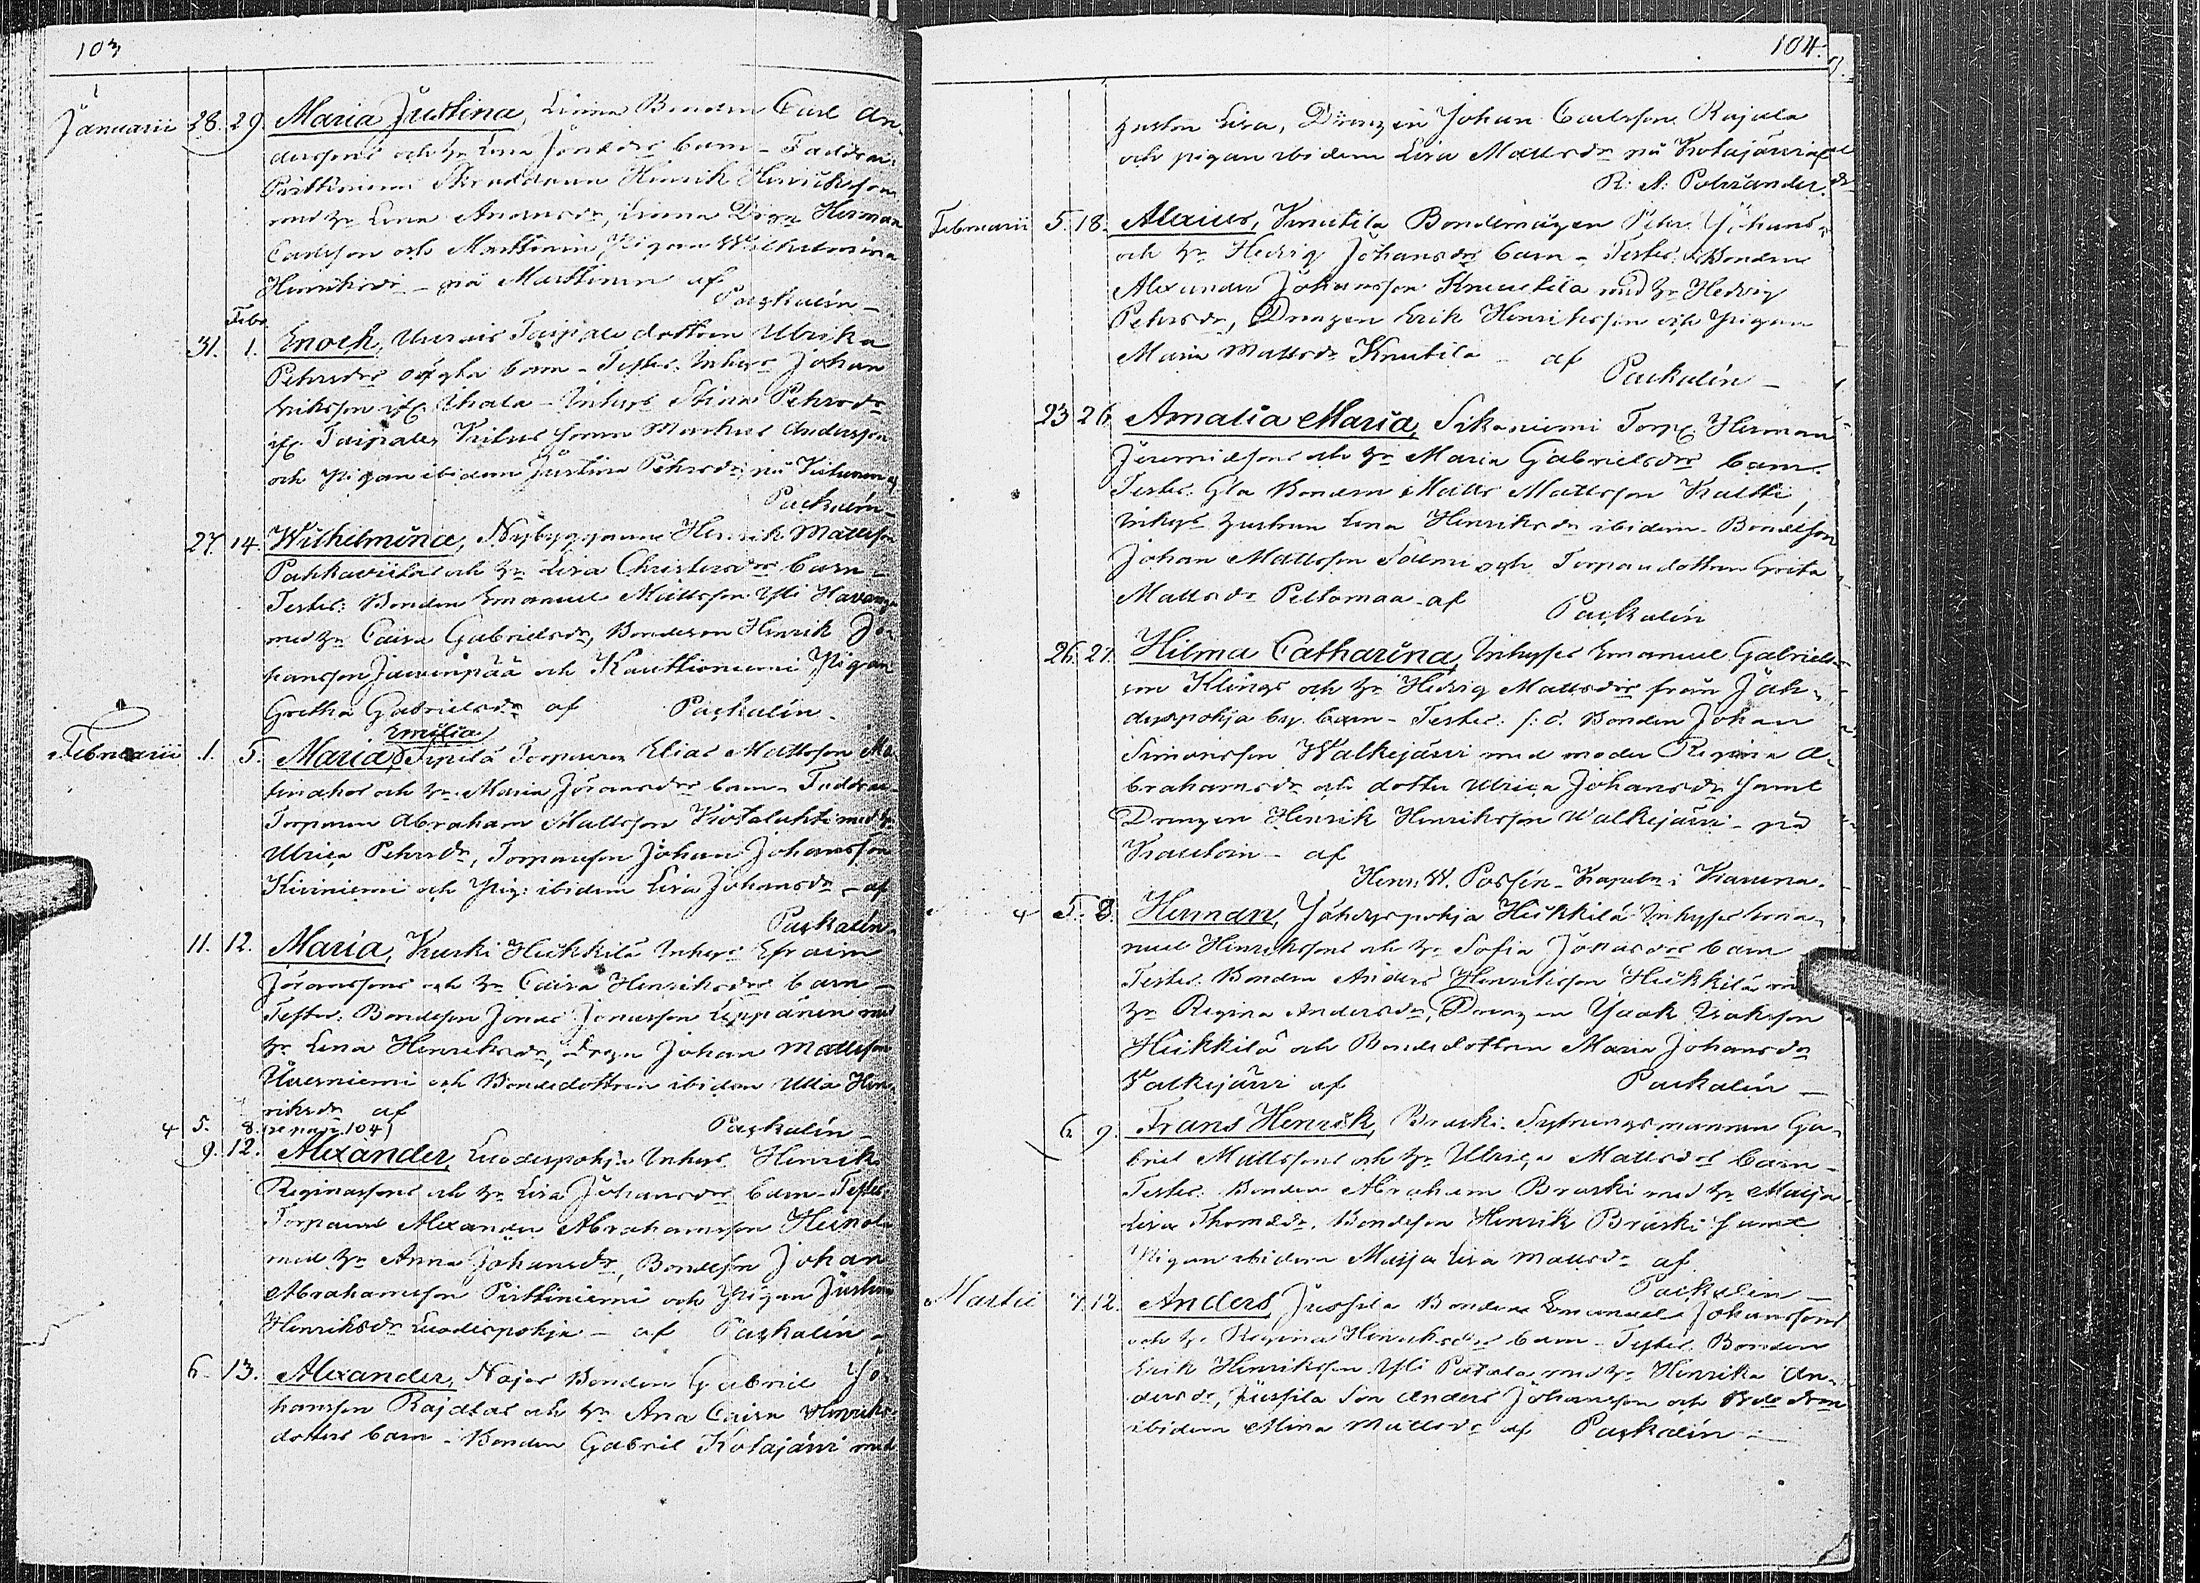 103
Januarii 28. 29. Maria Justina, Bonden Carl An-
derssons och h. Lena barn - Faddrar
Henrik Henriksson
med h. Lena Andersdr, Herman
Carlsson och Marttinen Pigan Wilhelmina
Henriksdr - på Marttinen af
Paskalin -
Febr
31. 1. Enoch, Taipale dottren Ulrika
Pehrsdrs oägta barn - Testes: Inhyse Johan
Eriksson Uhala - Inhyse Stina Pehrsdr
Taipale, Markus Andersson
och Pigan ibidem Justina Pehrsdr, på
Paskalin -
27. 14. Wilhelmina, Nybyggaren Henrik Mattsson
och h. Lisa Christersdrs barn -
Testes: Bonden Emanuel Mattsson Yli
med h. Caisa Gabrielsdr, Bondeson Henrik Jo-
hansson Jaurinpää och Kauttoniemi Pigan
Gretha Gabrielsdr af Paskalin -
Emilia
Februarii 1. 5. Maria, Sipilä Torparen Elias Mattsson
och h. Maria Göransdrs barn - Faddrar
Torparen Abraham Mattsson Kivtalahti med h.
Ulrica Pehrsdr, Torparesson Johan Johansson
Kiviniemi och Pig: ibidem Lisa Johansdr - af
Paskalin -
11. 12. Maria, Kuski Heikkilä Inhys Efraim
Göranssons och h. Caisa Henriksdrs barn -
Testes: Bondeson Jonas Jonasson Leppänen med
h. Lena Henriksdr, Johan Mattsson
och Bondedottren ibidem Ulla Hen-
riksdr af
Paskalin -
4 5. 8. (se pag. 104)
9. 12. Alexander, Luodespohja Inhys. Henrik
Reginassons och h. Lisa Johansdrs barn - Testes
Torparen Alexander Abrahamsson Heinola
med h. Anna Johansdr, Bondeson Johan
Abrahamsson Pirttiniemi och Pigan Justina
Henriksdr Luodespohja - af Paskalin -
6. 13. Alexander, Najos Bonden Gabriel Jo-
hansson Rajalas och h. Ana Caisa Henriks-
dotters barn - Bonden Gabriel Kotajärvi med
104.
hustru Lisa, Drengen Johan Carlsson Rajala
och pigan ibidem Lisa Mattsdr på Kotajärvi af
R: A: Polviander.
Februarii 5. 18. Knutila Bondemågen Pehr Johans-
och h. Hedvig Johansdrs barn - Testes: Bonden
Alexander Johansson Knuutila med h. Hedvig
Pehrsdr, Drengen Erik Henriksson och Pigan
Maria Mattsdr Knutila - af
Paskalin -
23 26. Amalia Maria, Sikaniemi Torp: Herman
Jeremiassons och h. Maria Gabrielsdrs barn -
Testes: Gla Bonden Matts Mattsson Kaltti,
Inhys hustrun Lena Henriksdr ibidem. Bondeson
Johan Mattsson Salmi och Torparedottren Greta
Mattsdr Peltomaa - af
Paskalin
26. 27. Hilma Catharina, Inhyses Emanuel Gabriels-
son Klings och h. Hedvig Mattsdrs från Jäh-
dyspohja by. barn - Testes: f: d. Bonden Johan
Simonsson Walkejärvi med moder Regina A-
brahamsdr och dotter Ulrica Johansdr samt
Drengen Henrik Henriksson Walkejärvi - på
Krautoin - af
Henr. W. Possén - Kapeln i Kauvna.
4 5. 8. Herman, Jähdyspohja Heikkilä Inhyses Ema-
nuel Henrikssons och h. Sofia Jonasdrs barn
Testes. Bonden Anders Henriksson Heikkilä med
h. Regina Andersdr, Drengen Isaak Isaksson
Heikkilä och Bondedottren Maria Johansdr
Valkejärvi af Paskalin -
6. 9. Frans Henrik, Braski. Sytningsmannen Ga-
briel Mattssons och h. Ulrica Mattsdrs barn -
Testes: Bonden Abraham Braski med h. Maija
Lisa Thomædr. Bondeson Henrik Braski samt
Pigan ibidem Maija Lisa Mattsdr af
Paskalin -
Martii 7. 12. Anders, Jussila Bonden Emanuel Johanssons
och h. Regina Henriksdrs barn - Testes Bonden
Erik Henriksson Yli Patala med h. Henrika An-
dersdr, Jussila Son Anders Johansson och
ibidem Mina Mattsdr af Paskalin -